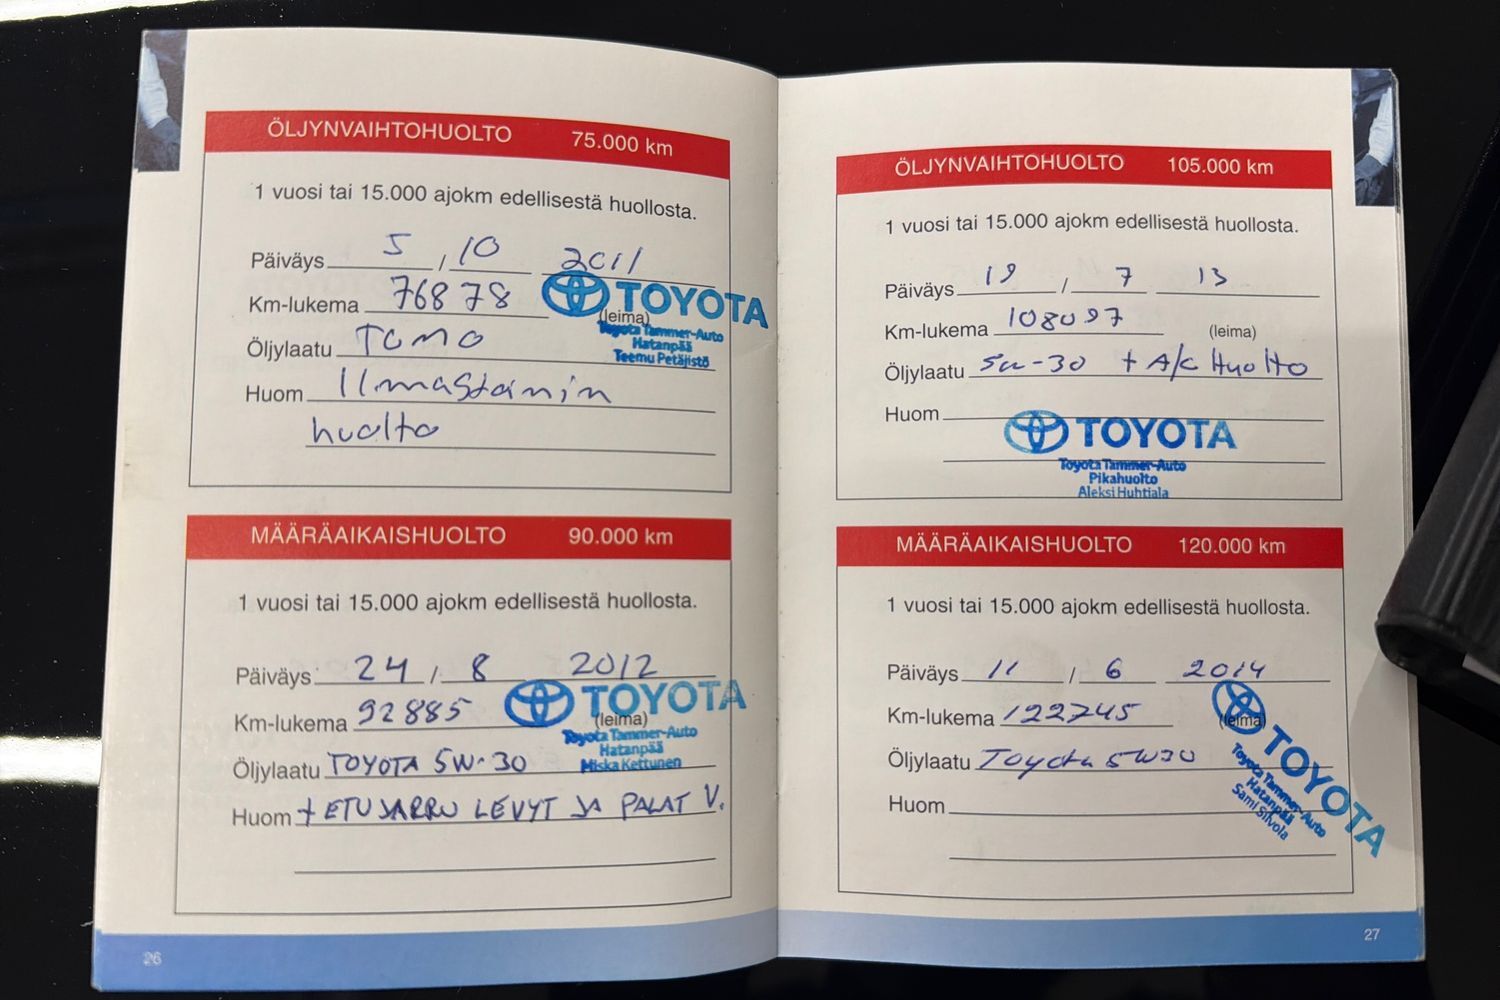 ÖLJYNVAIHTOHUOLTO 75.000 km
1 vuosi tai 15.000 ajokm edellisestä huollosta.
Päiväys 5 / 10 2011
Km-lukema 76878
TOYOTA
(leima)
Toyota Tammer-Auto
Hatanpää
Teemu Petäjistö
Öljylaatu
Huom Ilmastoinin
huolto
MÄÄRÄAIKAISHUOLTO 90.000 km
1 vuosi tai 15.000 ajokm edellisestä huollosta.
Päiväys 24 / 8 2012
Km-lukema 92885
TOYOTA
(leima)
Toyota Tammer-Auto
Hatanpää
Miska Kettunen
Öljylaatu TOYOTA 5W-30
Huom + ETUJARRU LEVYT JA PALAT V.
26
ÖLJYNVAIHTOHUOLTO 105.000 km
1 vuosi tai 15.000 ajokm edellisestä huollosta.
Päiväys 19 / 7 13
Km-lukema 108097 (leima)
Öljylaatu 5w-30 + A/C Huolto
Huom
TOYOTA
Toyota Tammer-Auto
Pikahuolto
Aleksi Huhtiala
MÄÄRÄAIKAISHUOLTO 120.000 km
1 vuosi tai 15.000 ajokm edellisestä huollosta.
Päiväys 11 / 6 2014
Km-lukema 122745 (leima)
TOYOTA
Toyota Tammer-Auto
Hatanpää
Sami Silvola
Öljylaatu Toyota 5W30
Huom
27